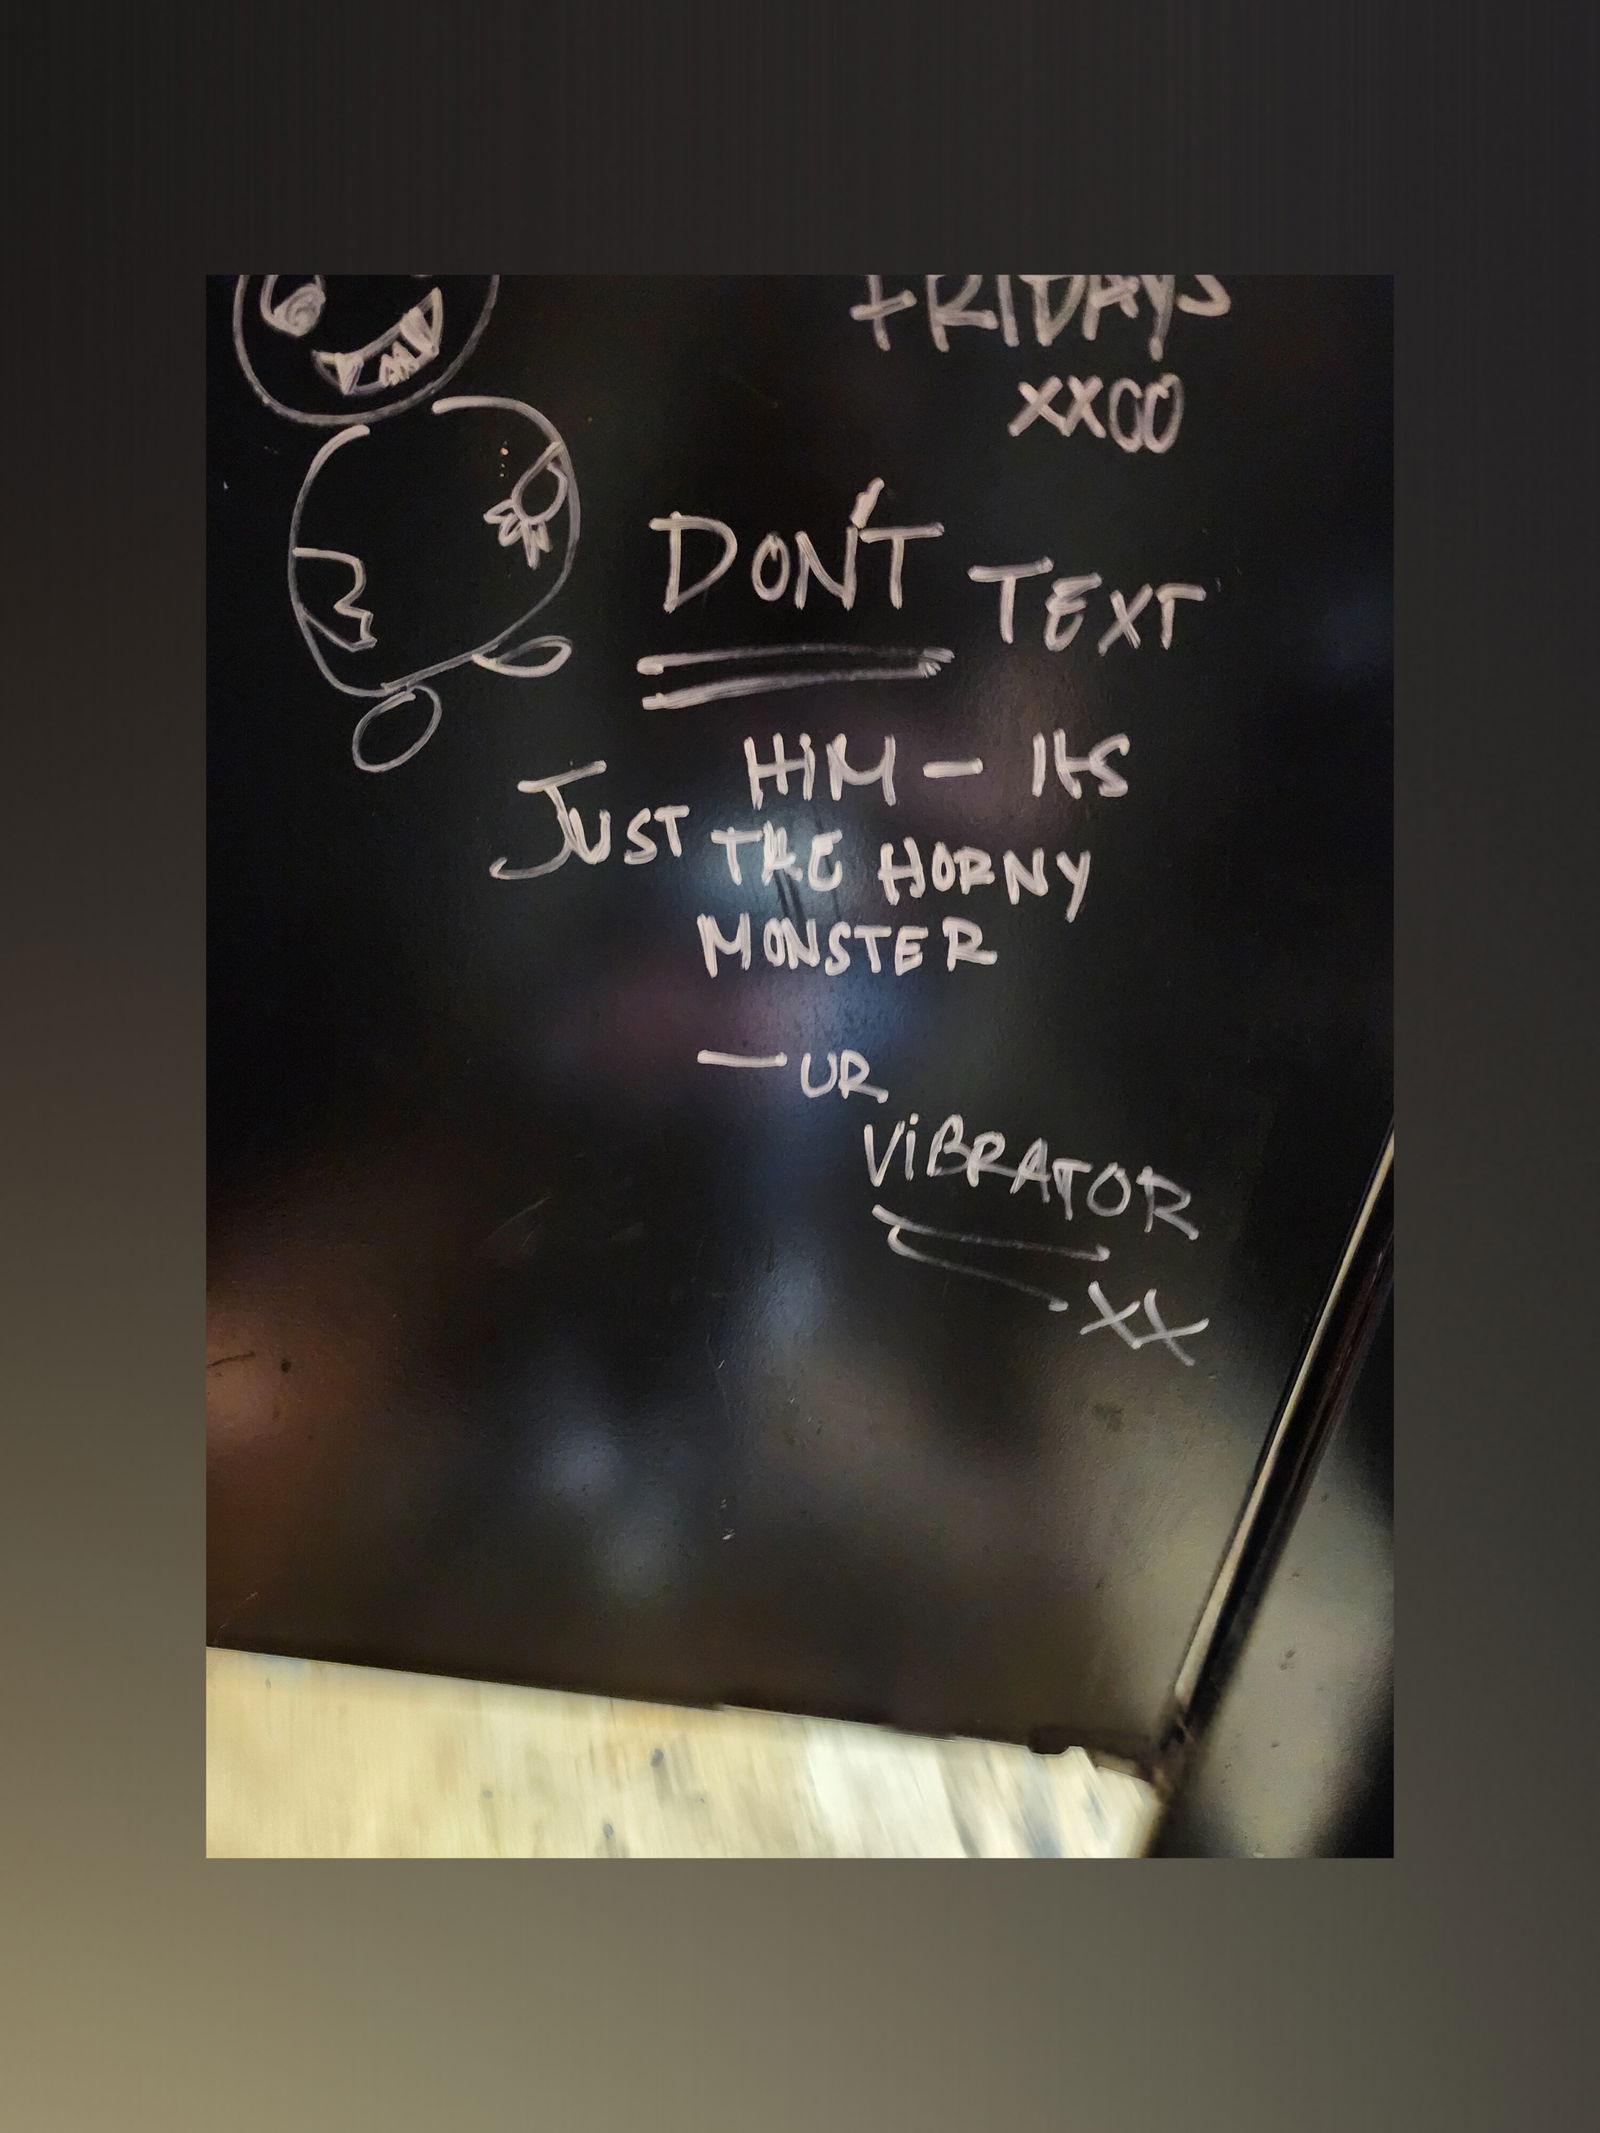 FRIDAYS
XXOO
DON'T TEXT
HIM — ITS
JUST THE HORNY
MONSTER
— UR
VIBRATOR
XX